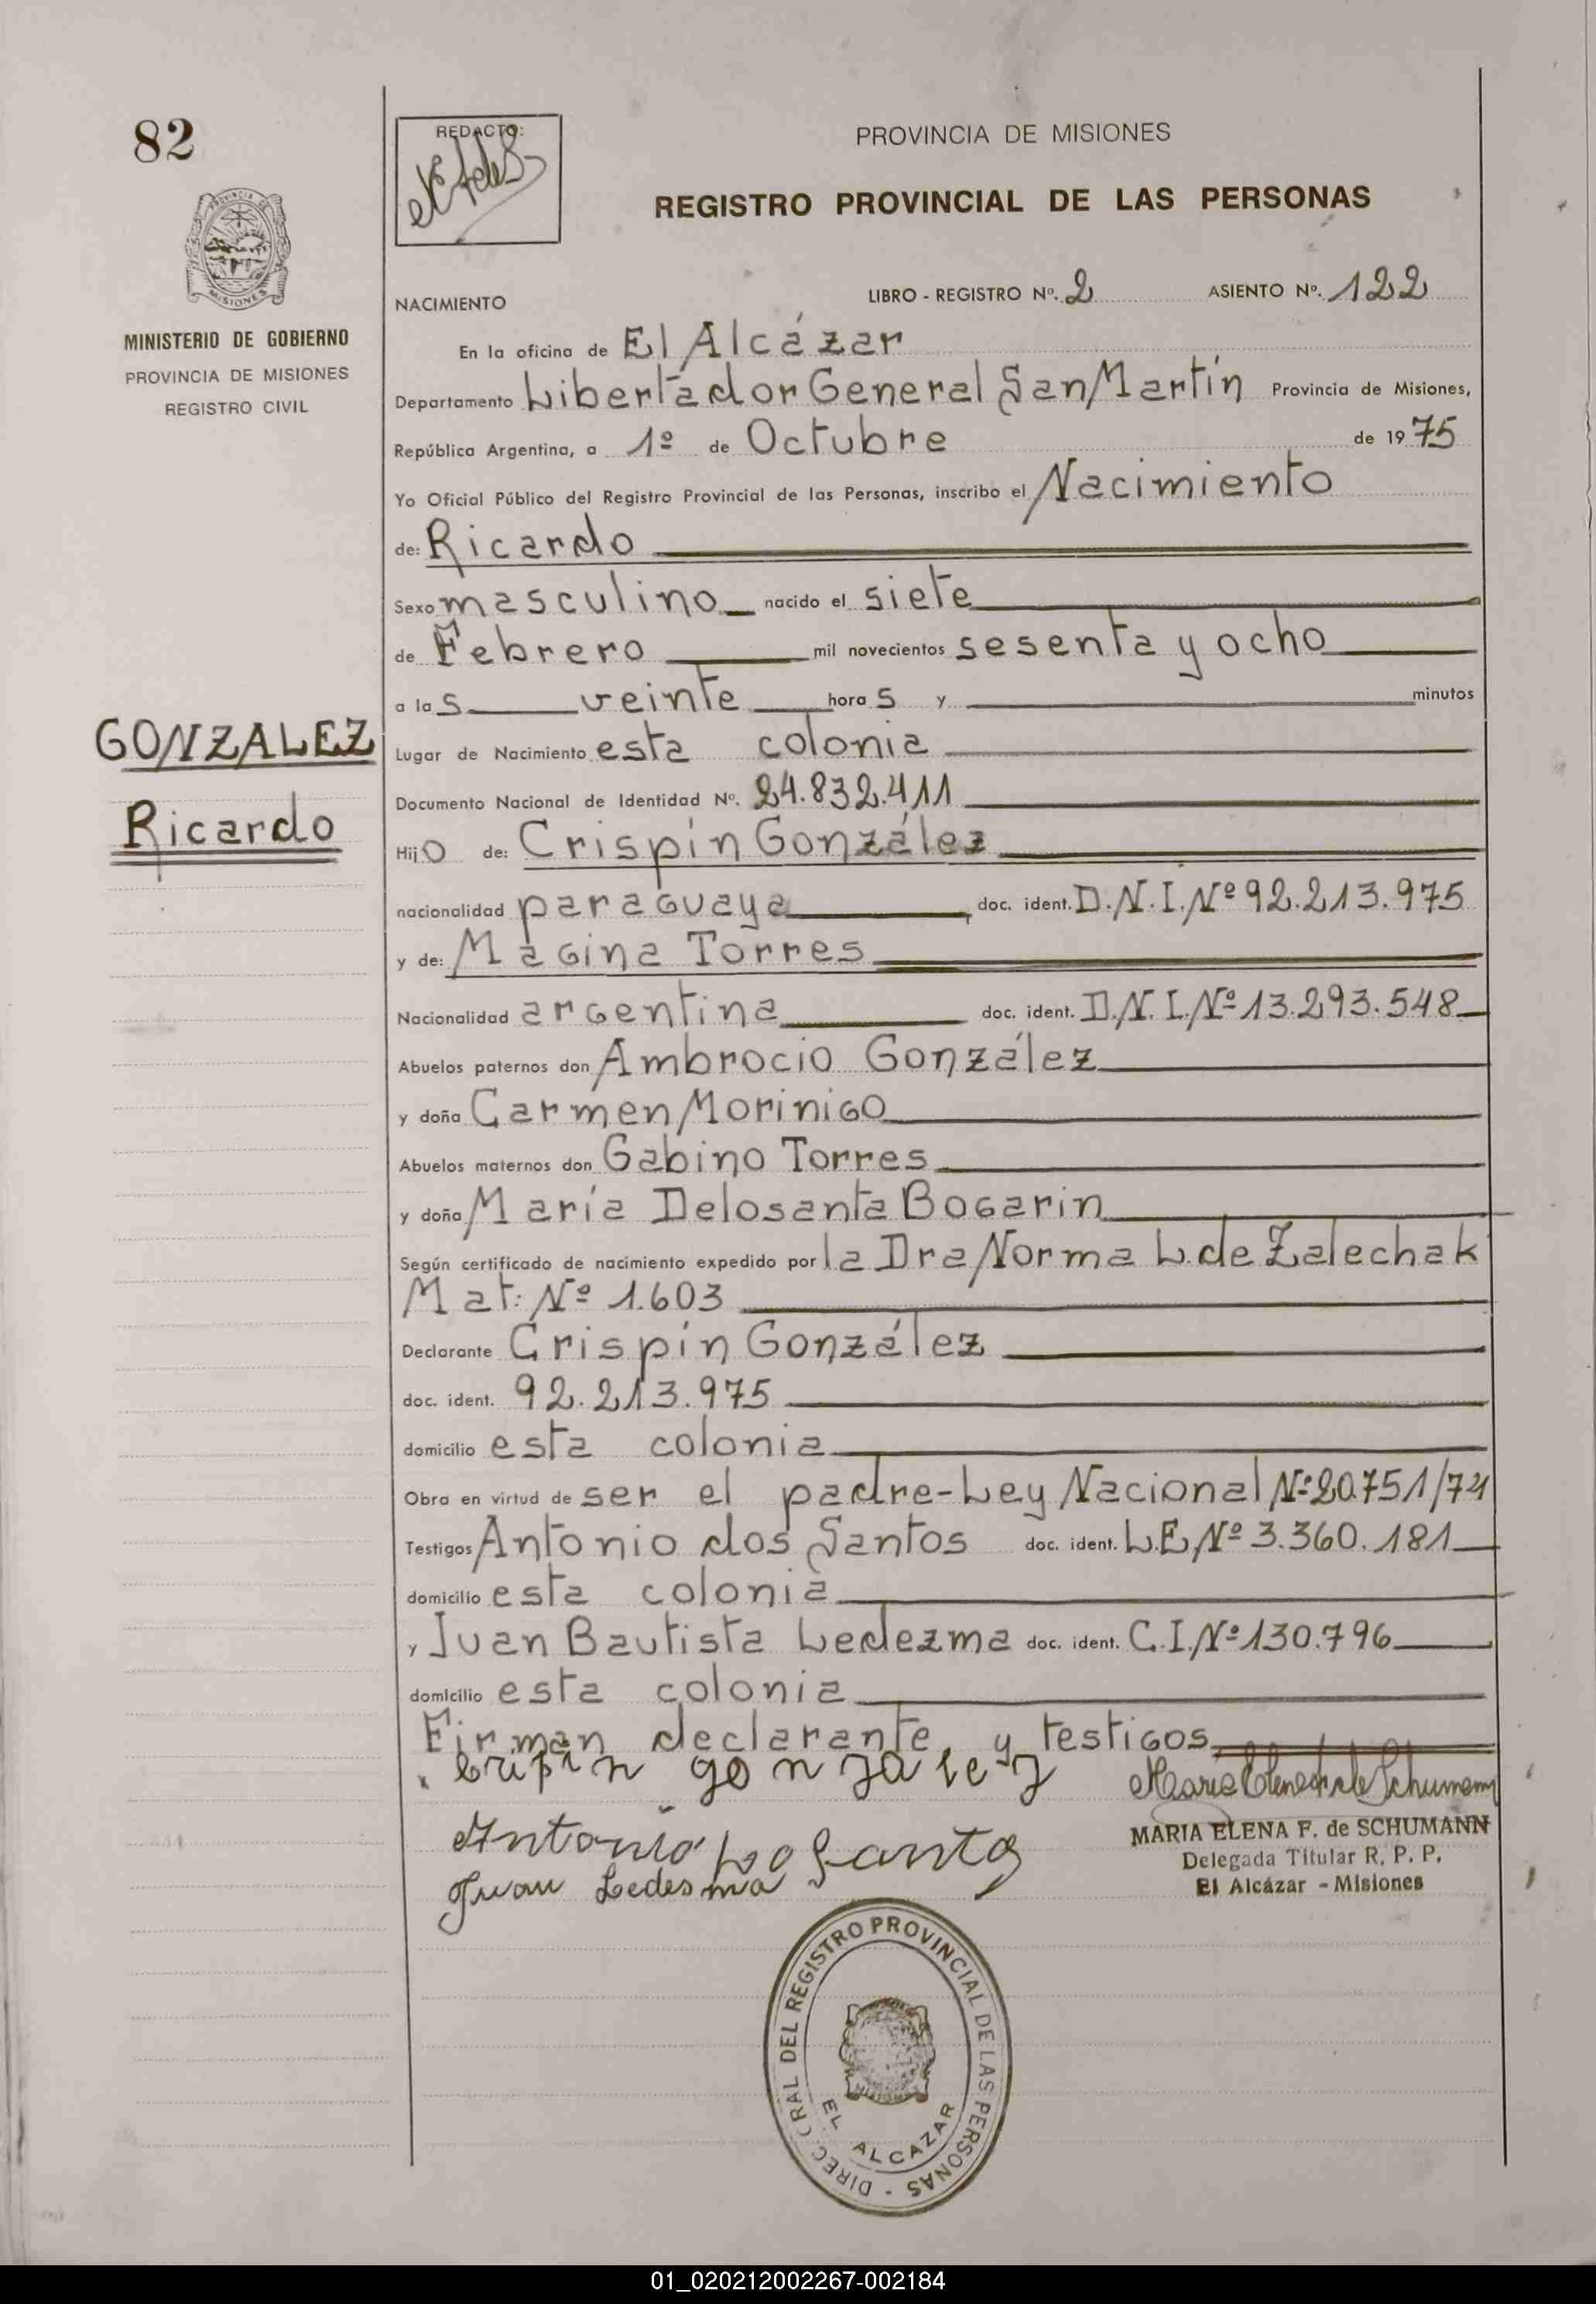 82
REDACTO:
PROVINCIA DE MISIONES
REGISTRO PROVINCIAL DE LAS PERSONAS
MISIONES
MINISTERIO DE GOBIERNO
PROVINCIA DE MISIONES
REGISTRO CIVIL
NACIMIENTO
LIBRO - REGISTRO Nº. 2 ASIENTO Nº. 122
En la oficina de El Alcázar
Departamento Libertador General San Martín Provincia de Misiones,
República Argentina, a 1º de Octubre de 1975
Yo Oficial Público del Registro Provincial de las Personas, inscribo el Nacimiento
de: Ricardo
Sexo masculino nacido el siete
de Febrero mil novecientos sesenta y ocho
a las veinte horas y minutos
GONZALEZ
Ricardo
Lugar de Nacimiento esta colonia
Documento Nacional de Identidad Nº. 24.832.411
Hijo de: Crispín González
nacionalidad paraguaya doc. ident. D.N.I.Nº 92.213.975
y de: Magina Torres
Nacionalidad argentina doc. ident. D.N.I.Nº 13.293.548
Abuelos paternos don Ambrocio González
y doña Carmen Morinigo
Abuelos maternos don Gabino Torres
y doña María Delosanta Bogarin
Según certificado de nacimiento expedido por la Dra Norma L. de Zalechak
Mat: Nº 1.603
Declarante Crispín González
doc. ident. 92.213.975
domicilio esta colonia
Obra en virtud de ser el padre-Ley Nacional Nº 20.751/74
Testigos Antonio dos Santos doc. ident. L.E.Nº 3.360.181
domicilio esta colonia
y Juan Bautista Ledezma doc. ident. C.I.Nº 130.796
domicilio esta colonia
Firman declarante y testigos
Cripin gonzalez
Antonio Santo
Juan Ledesma
MARIA ELENA F. de SCHUMANN
Delegada Titular R. P. P.
El Alcázar - Misiones
DIREC. GRAL DEL REGISTRO PROVINCIAL DE LAS PERSONAS -
EL ALCAZAR
01_020212002267-002184